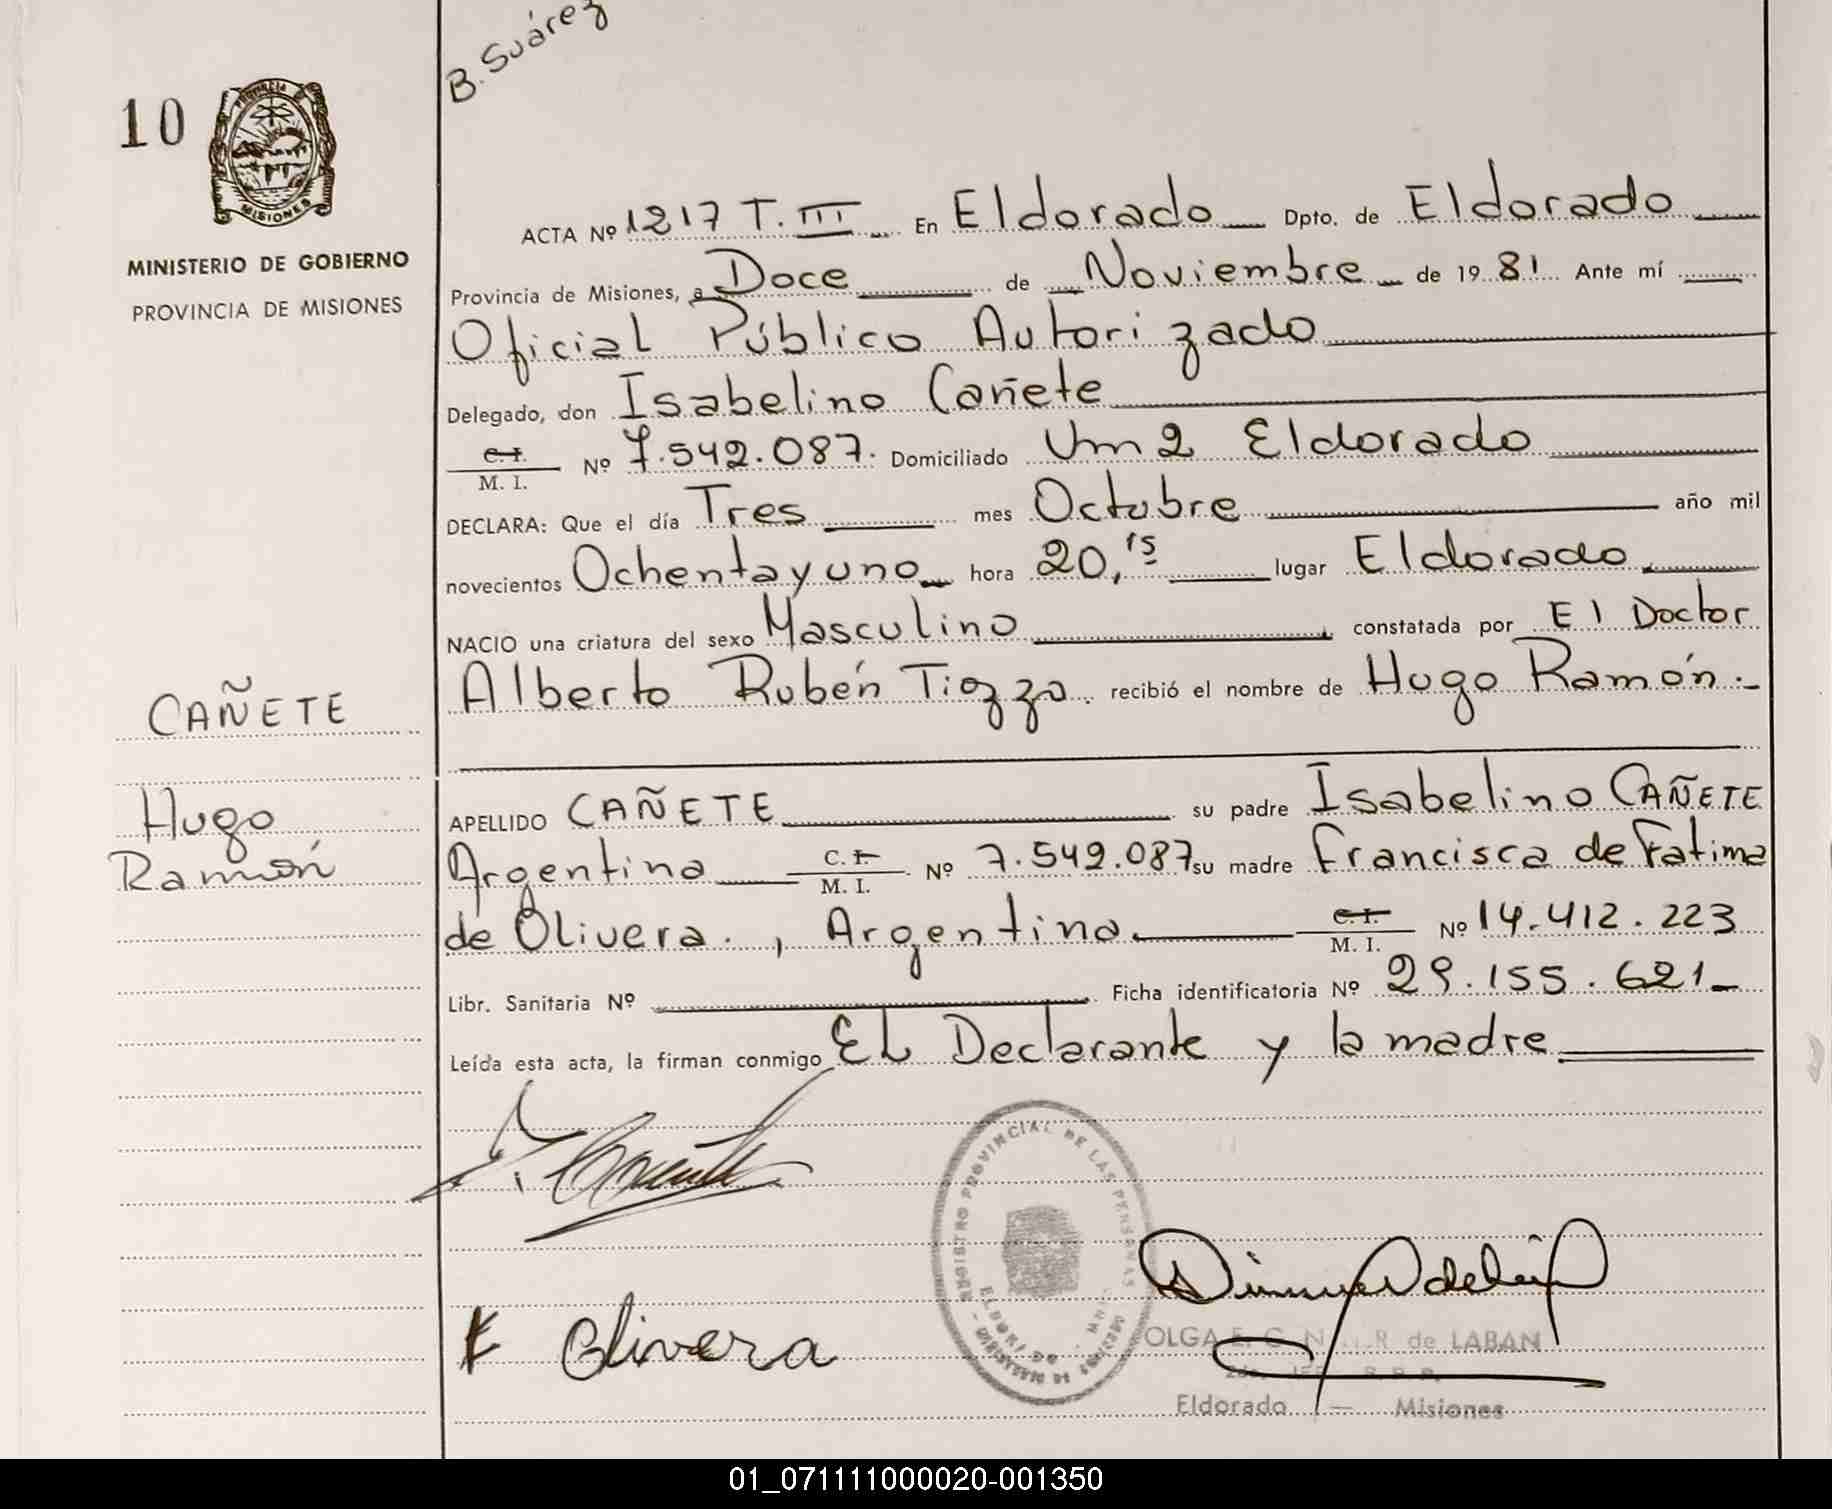 B. Suárez
10
PROVINCIA
MISIONES
MINISTERIO DE GOBIERNO
PROVINCIA DE MISIONES
ACTA Nº 1217 T. III En Eldorado Dpto. de Eldorado
Provincia de Misiones, a Doce de Noviembre de 1981 Ante mí
Oficial Público Autorizado
Delegado, don Isabelino Cañete
C. I.
M. I. Nº 7.542.087. Domiciliado Um 2 Eldorado
DECLARA: Que el día Tres mes Octubre año mil
novecientos Ochentayuno hora 20,15 lugar Eldorado
NACIO una criatura del sexo Masculino constatada por El Doctor
Alberto Rubén Tiozzo recibió el nombre de Hugo Ramón.-
CAÑETE
Hugo
Ramón
APELLIDO CAÑETE su padre Isabelino CAÑETE
Argentino C. I.
M. I. Nº 7.542.087 su madre Francisca de Fatima
de Olivera., Argentina. C. I.
M. I. Nº 14.412.223
Libr. Sanitaria Nº Ficha identificatoria Nº 29.155.621
Leída esta acta, la firman conmigo El Declarante y la madre
REGISTRO PROVINCIAL DE LAS PERSONAS
Olivera
OLGA E. de LABAN
Eldorado — Misiones
01_071111000020-001350